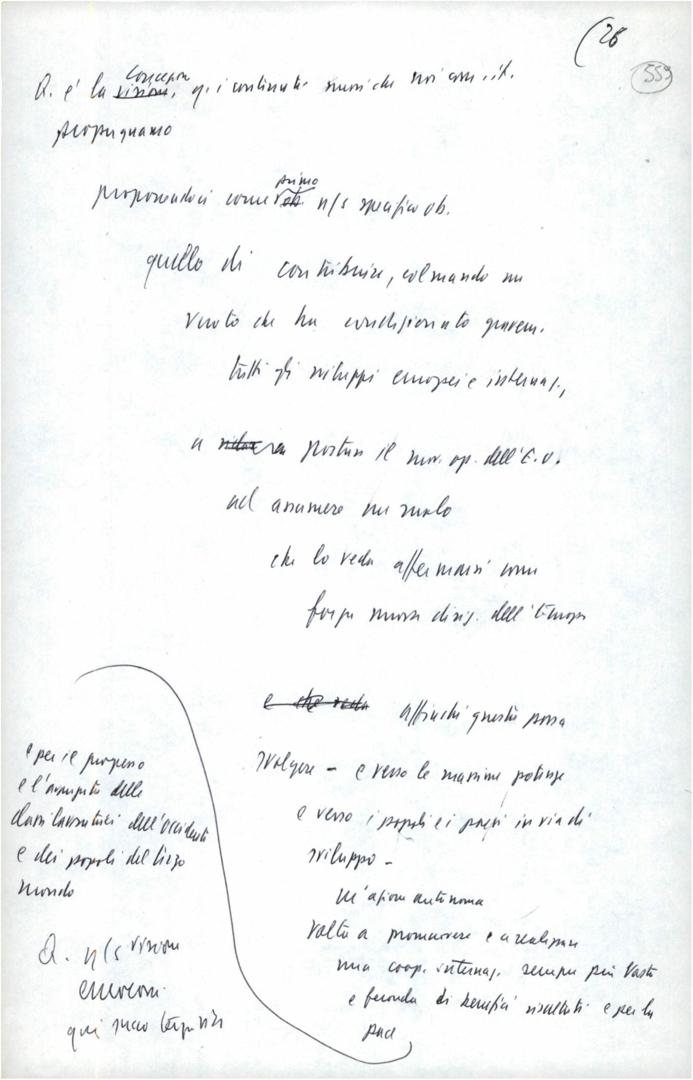 (26
559
concezione
Q. è la visione, q. i contenuti nuovi che noi com. it.
propugnamo
primo
proponendoci come n/s specifico ob.
quello di contribuire, colmando un
vuoto che ha condizionato gravem.
tutti gli sviluppi europei e internaz.,
a portare il mov. op. dell'E.O.
ad assumere un ruolo
che lo veda affermarsi come
forza nuova dirig. dell'Europa
e che veda affinché questa possa
svolgere – e verso le massime potenze
e verso i popoli e i paesi in via di
sviluppo –
un'azione autonoma
volta a promuovere e a realizzare
una coop. internaz. sempre più vasta
e feconda di benefici risultati e per la
pace
e per il progresso
e l'avanzata delle
classi lavoratrici dell'occidente
e dei popoli del terzo
mondo
Q. n/s visione
eurocom.
qui